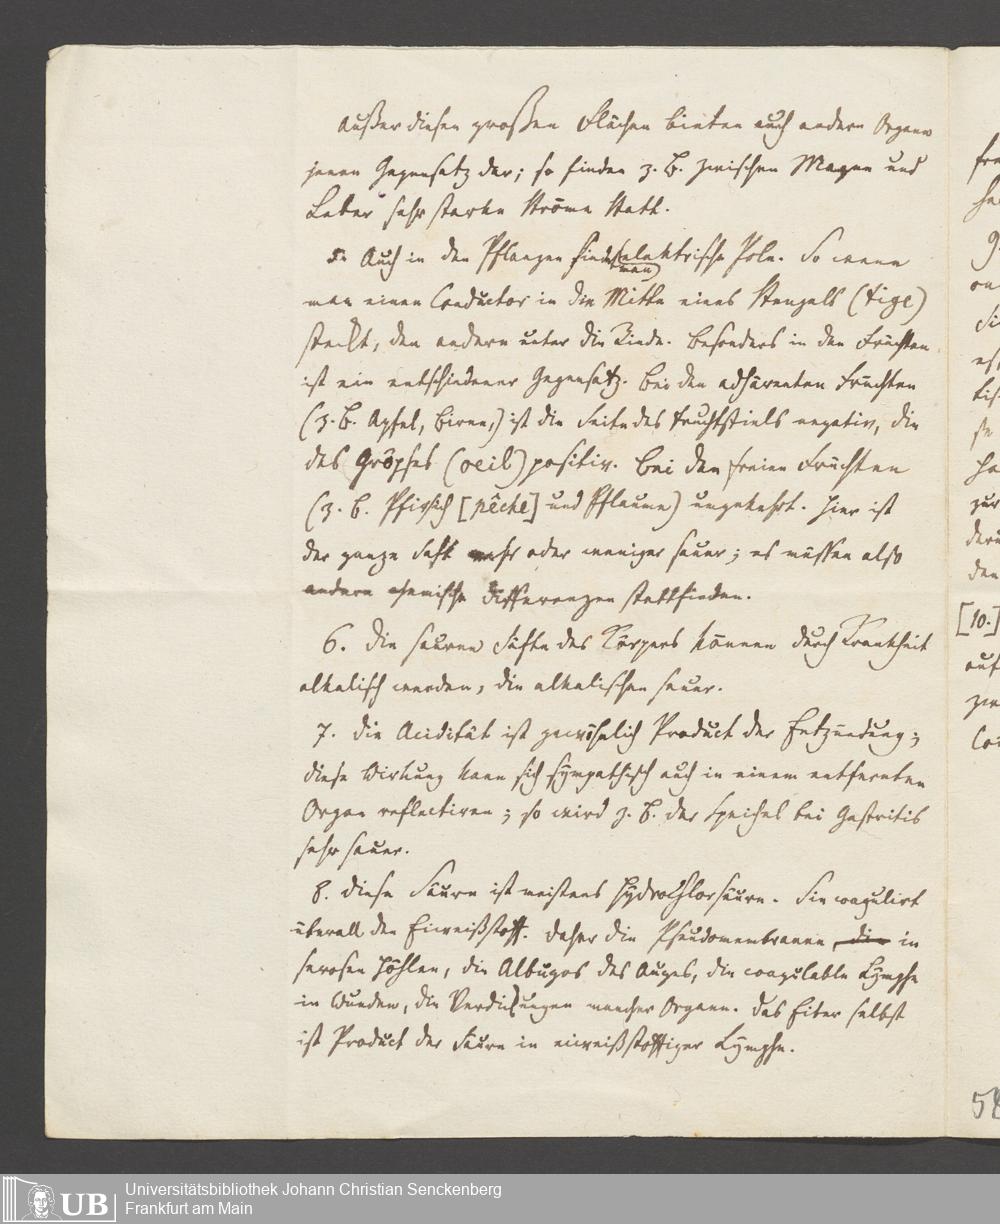 Außer diesen großen Flächen bieten auch andere Organe
jenen Gegensatz dar; so finden z. B. zwischen Magen und
Leber sehr starke Ströme statt.
5. Auch in den Pflanzen findet man elektrische Pole. So wenn
man einen Conductor in die Mitte eines Stengels (tige)
steckt, den andern unter die Rinde. Besonders in den Früchten
ist ein entschiedener Gegensatz. Bei den adhärenten Früchten
(z. B. Apfel, Birne,) ist die Seite des Fruchtstiels negativ, die
des Gröpses (oeil) positiv. Bei den freien Früchten
(z. B. Pfirsich [pêche] und Pflaume) umgekehrt. Hier ist
der ganze Saft mehr oder weniger sauer; es müssen also
andere chemische Differenzen stattfinden.
6. Die sauren Säfte des Körpers können durch Krankheit
alkalisch werden, die alkalischen sauer.
7. Die Acidität ist gewöhnlich Product der Entzündung;
diese Wirkung kann sich sympathisch auch in einem entfernten
Organ reflectiren; so wird z. B. der Speichel bei Gastritis
sehr sauer.
8. Diese Säure ist meistens Hydrochlorsäure. Sie coagulirt
überall den Eiweißstoff. Daher die Pseudomembranen die in
serosen Höhlen, die Albugos des Auges, die coagulable Lymphe
in Wunden, die Verdickungen mancher Organe. Das Eiter selbst
ist Product der Säure in eiweißstoffiger Lymphe.
[10.]
Universitätsbibliothek Johann Christian Senckenberg
Frankfurt am Main
UB